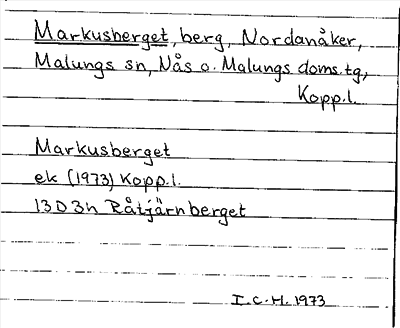 Markusberget, berg, Nordanåker,
Malungs sn, Nås o. Malungs doms.tg,
Kopp.l.
Markusberget
ek (1973) Kopp.l.
13D3h Råtjärnberget
I.C.H. 1973